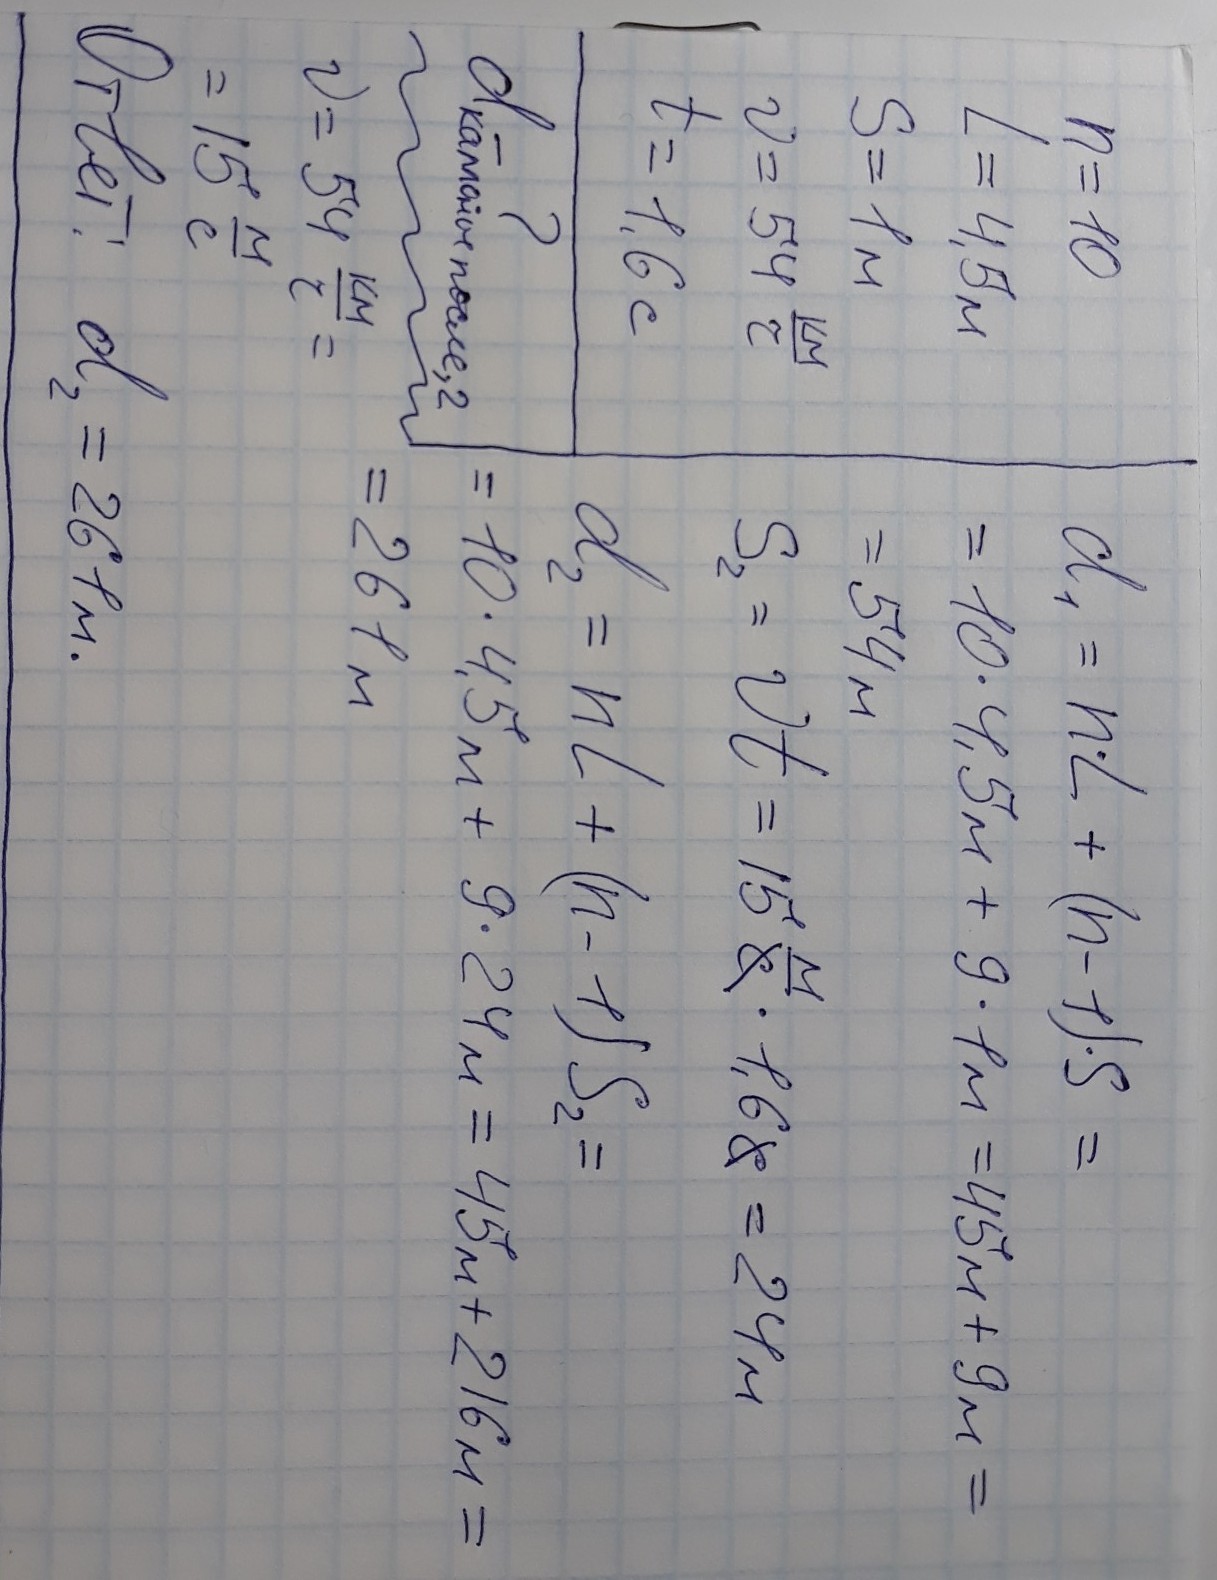 n = 10
L = 4,5 м
S = 1 м
v = 54 км/ч
t = 1,6 с
d - ?
v = 54 км/ч =
= 15 м/с
d₁ = n·L + (n - 1)·S =
= 10 · 4,5 м + 9 · 1 м = 45 м + 9 м =
= 54 м
S₂ = vt = 15 м/с · 1,6 с = 24 м
d₂ = nL + (n - 1)S₂ =
= 10 · 4,5 м + 9 · 24 м = 45 м + 216 м =
= 261 м
Ответ: d₂ = 261 м.